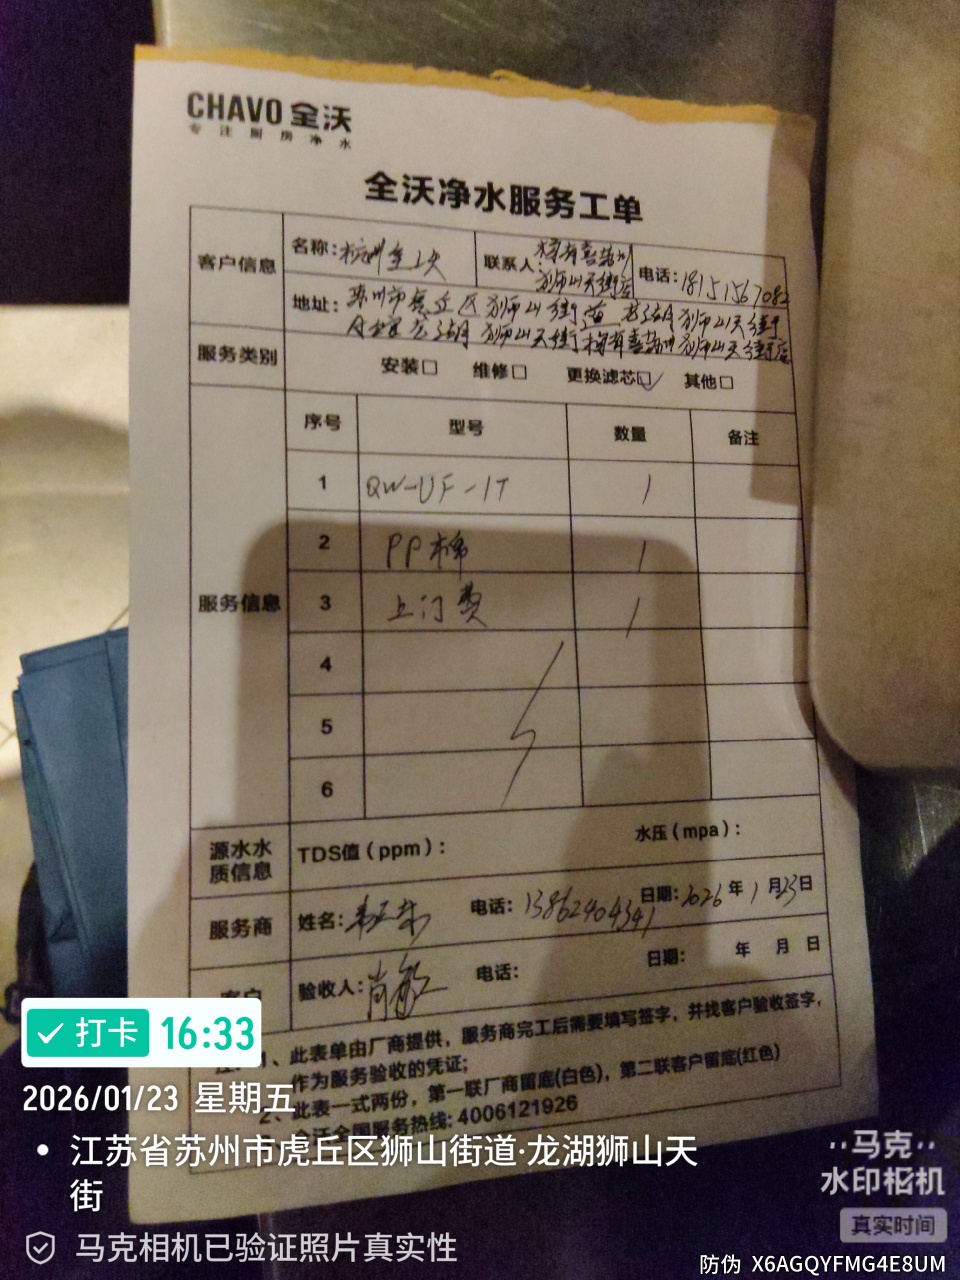 CHAVO 全沃
专注厨房净水
全沃净水服务工单
客户信息 名称: 杭州全上 联系人: 苏州狮山天街店 电话: 18151567082
地址: 苏州市虎丘区狮山街道龙湖狮山天街
龙湖狮山天街 狮山天街店
服务类别 安装□ 维修□ 更换滤芯☑ 其他□
服务信息 序号 型号 数量 备注
1 QW-UF-1T 1
2 PP棉 1
3 上门费 1
4
5
6
源水水质信息 TDS值(ppm): 水压(mpa):
服务商 姓名: 电话: 13862404341 日期: 2026年1月23日
客户 验收人: 肖敏 电话: 日期: 年 月 日
1、此表单由厂商提供,服务商完工后需要填写签字,并找客户验收签字,
作为服务验收的凭证;
2、此表一式两份,第一联厂商留底(白色),第二联客户留底(红色)
全沃全国服务热线: 4006121926
打卡 16:33
2026/01/23 星期五
• 江苏省苏州市虎丘区狮山街道·龙湖狮山天
街
马克相机已验证照片真实性
马克
水印相机
真实时间
防伪 X6AGQYFMG4E8UM